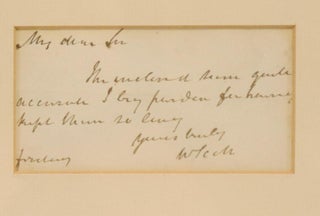 My dear Sir
The enclosed seem quite
accurate I beg pardon for having
kept them so long
yours truly
W Scott
friday